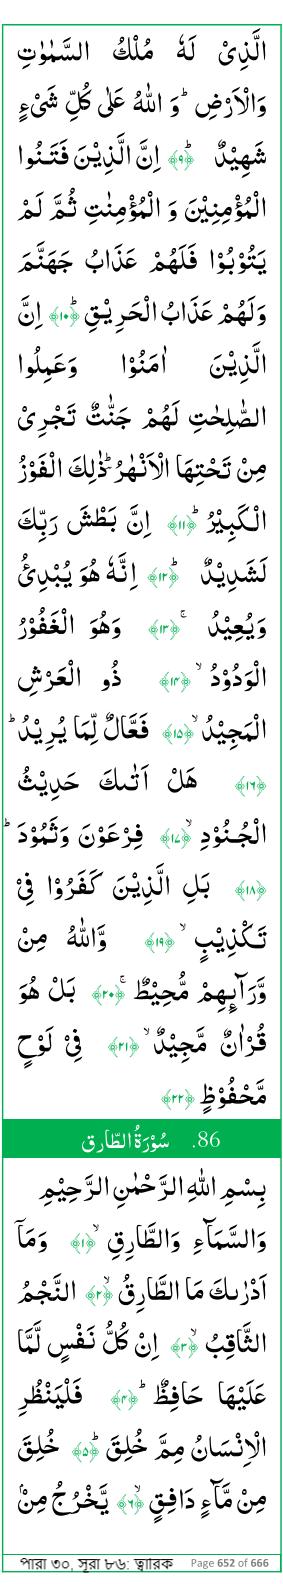 الَّذِیْ لَهٗ مُلْكُ السَّمٰوٰتِ
وَالْاَرْضِ ؕ وَ اللّٰهُ عَلٰی كُلِّ شَیْءٍ
شَهِیْدٌ ؕ﴿۹﴾ اِنَّ الَّذِیْنَ فَتَنُوا
الْمُؤْمِنِیْنَ وَ الْمُؤْمِنٰتِ ثُمَّ لَمْ
یَتُوْبُوْا فَلَهُمْ عَذَابُ جَهَنَّمَ
وَلَهُمْ عَذَابُ الْحَرِیْقِ ؕ﴿۱۰﴾ اِنَّ
الَّذِیْنَ اٰمَنُوْا وَعَمِلُوا
الصّٰلِحٰتِ لَهُمْ جَنّٰتٌ تَجْرِیْ
مِنْ تَحْتِهَا الْاَنْهٰرُ ؕ ذٰلِكَ الْفَوْزُ
الْكَبِیْرُ ؕ﴿۱۱﴾ اِنَّ بَطْشَ رَبِّكَ
لَشَدِیْدٌ ؕ﴿۱۲﴾ اِنَّهٗ هُوَ یُبْدِئُ
وَیُعِیْدُ ۚ﴿۱۳﴾ وَهُوَ الْغَفُوْرُ
الْوَدُوْدُ ۙ﴿۱۴﴾ ذُو الْعَرْشِ
الْمَجِیْدُ ۙ﴿۱۵﴾ فَعَّالٌ لِّمَا یُرِیْدُ ؕ
﴿۱۶﴾ هَلْ اَتٰىكَ حَدِیْثُ
الْجُنُوْدِ ۙ﴿۱۷﴾ فِرْعَوْنَ وَثَمُوْدَ ؕ
﴿۱۸﴾ بَلِ الَّذِیْنَ كَفَرُوْا فِیْ
تَكْذِیْبٍ ۙ﴿۱۹﴾ وَّاللّٰهُ مِنْ
وَّرَآىِٕهِمْ مُّحِیْطٌ ۚ﴿۲۰﴾ بَلْ هُوَ
قُرْاٰنٌ مَّجِیْدٌ ۙ﴿۲۱﴾ فِیْ لَوْحٍ
مَّحْفُوْظٍ ﴿۲۲﴾
86. سُوْرَةُ الطّارق
بِسْمِ اللّٰهِ الرَّحْمٰنِ الرَّحِیْمِ
وَالسَّمَآءِ وَالطَّارِقِ ۙ﴿۱﴾ وَمَاۤ
اَدْرٰىكَ مَا الطَّارِقُ ۙ﴿۲﴾ النَّجْمُ
الثَّاقِبُ ۙ﴿۳﴾ اِنْ كُلُّ نَفْسٍ لَّمَّا
عَلَیْهَا حَافِظٌ ؕ﴿۴﴾ فَلْیَنْظُرِ
الْاِنْسَانُ مِمَّ خُلِقَ ؕ﴿۵﴾ خُلِقَ
مِنْ مَّآءٍ دَافِقٍ ۙ﴿۶﴾ یَّخْرُجُ مِنْۢ
পারা ৩০, সূরা ৮৬: ত্বারিক Page 652 of 666